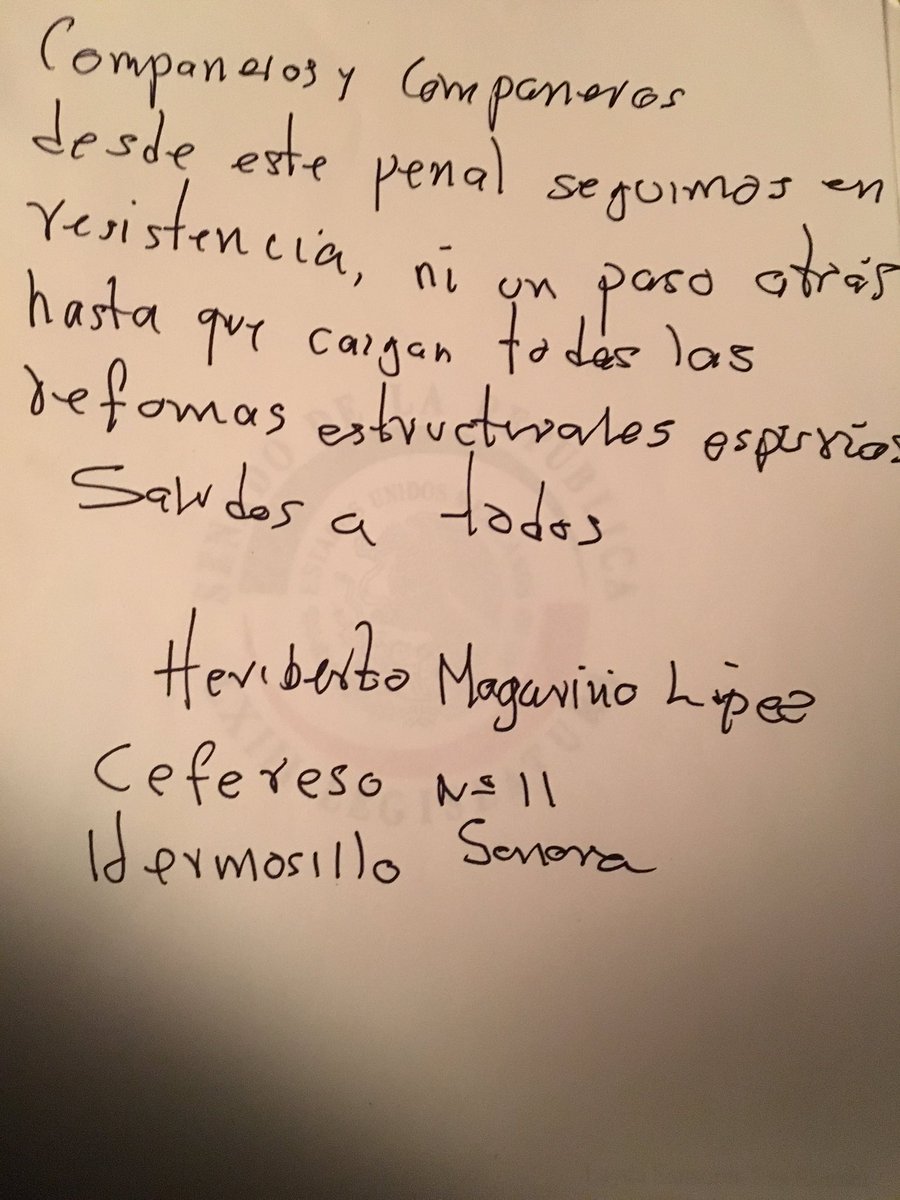 Companeros y Companeros
desde este penal seguimos en
resistencia, ni un paso atrás
hasta que caigan todas las
refomas estructurales espurias
Saludos a todos
Heriberto Magarinio López
Cefereso Nº 11
Hermosillo Sonora
SENADO DE LA REPÚBLICA